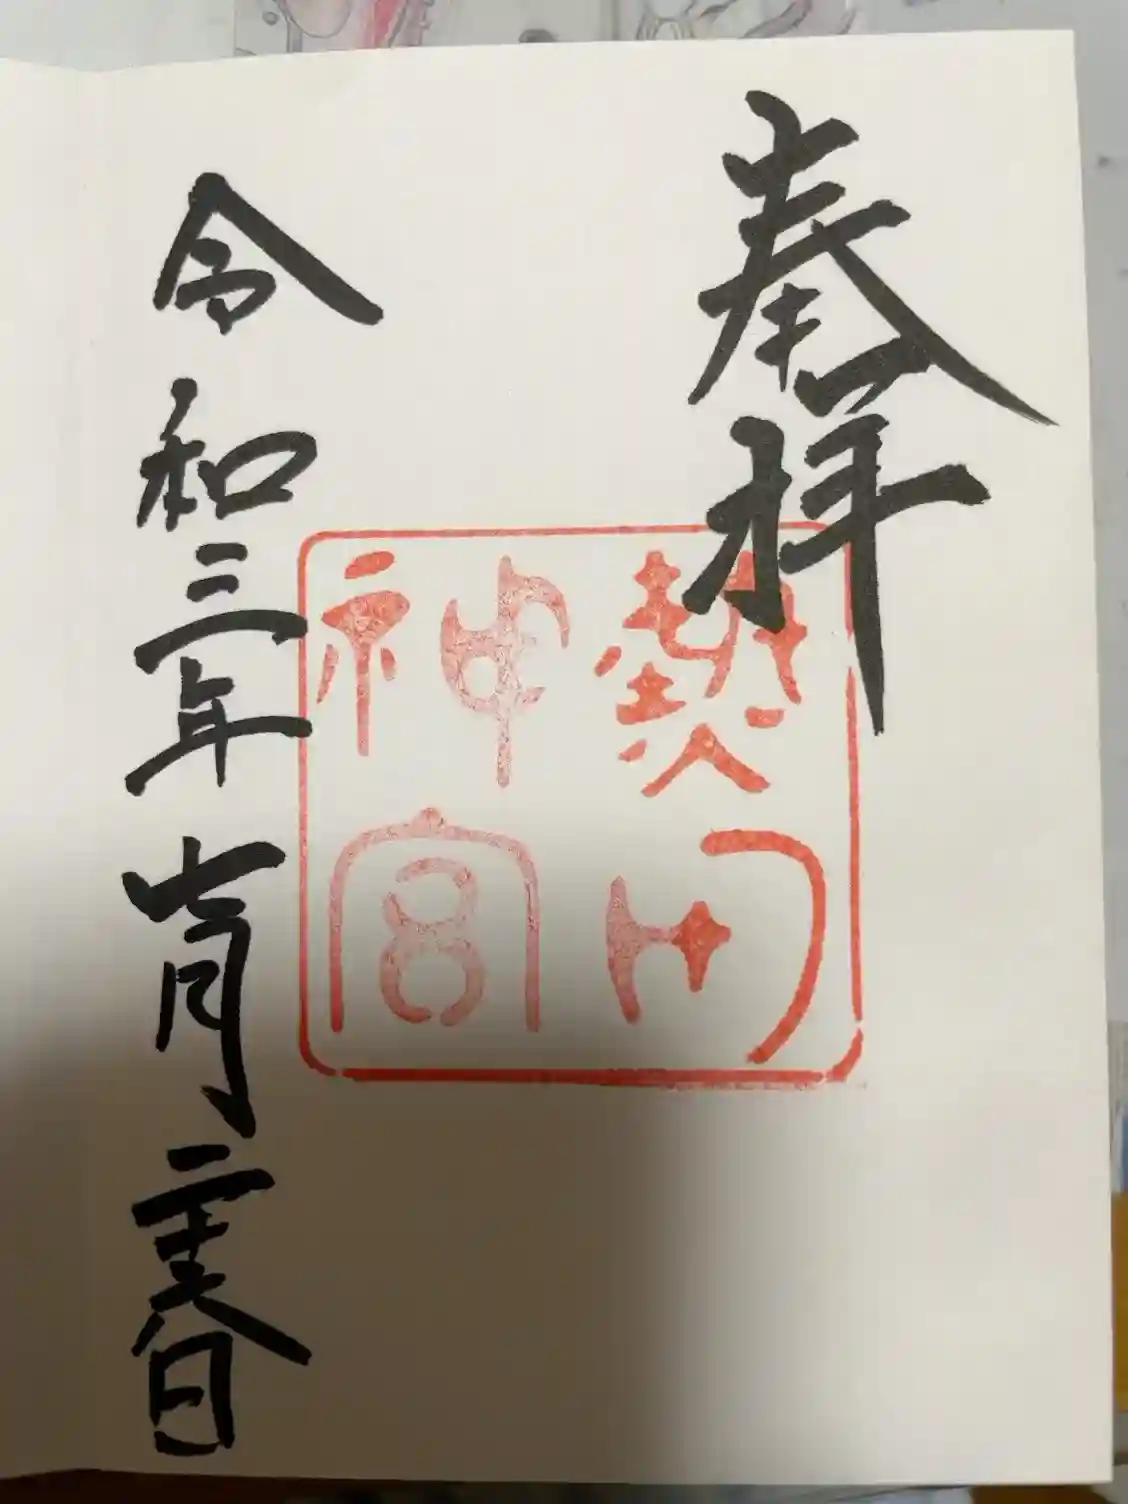 奉拝
熱田
神宮
令和三年七月二十六日